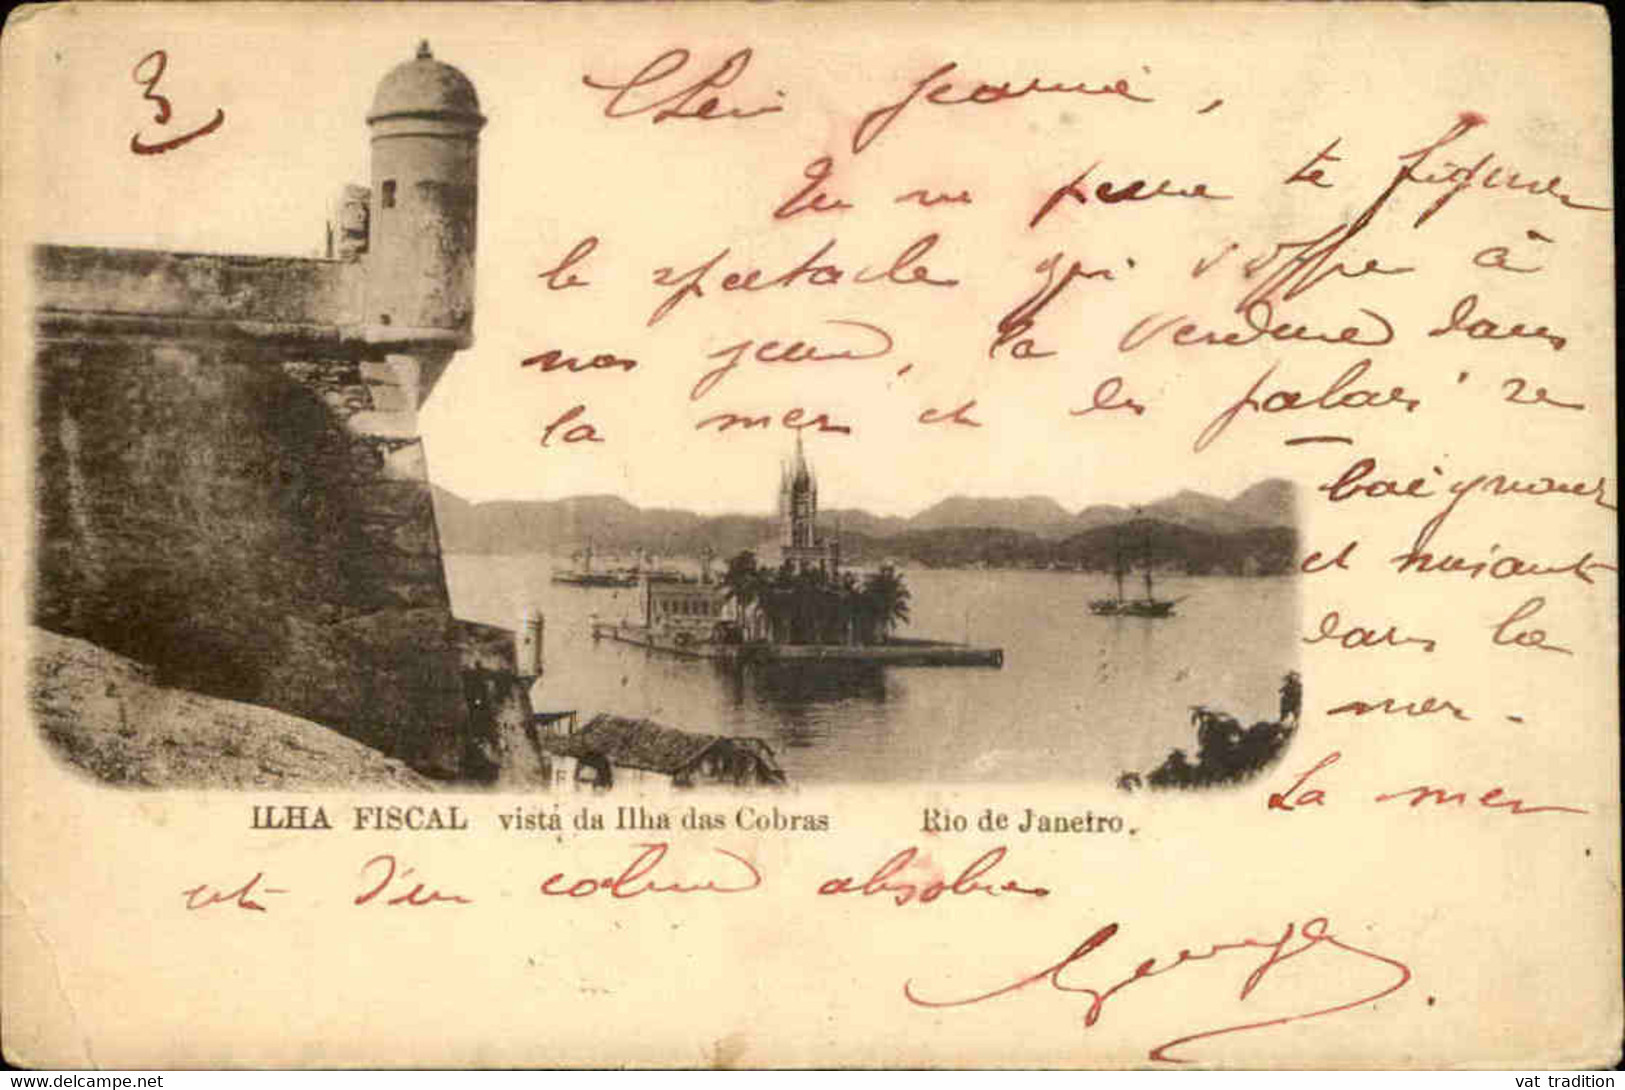 3
Cher Jeanne,
Tu ne peux te figurer
le spectacle qui s'offre à
nos yeux, la verdure dans
la mer et les palais se
baignant
et naissant
dans la
mer.
La mer
est d'un calme absolue
Georges
ILHA FISCAL vista da Ilha das Cobras Rio de Janeiro.
vat_tradition